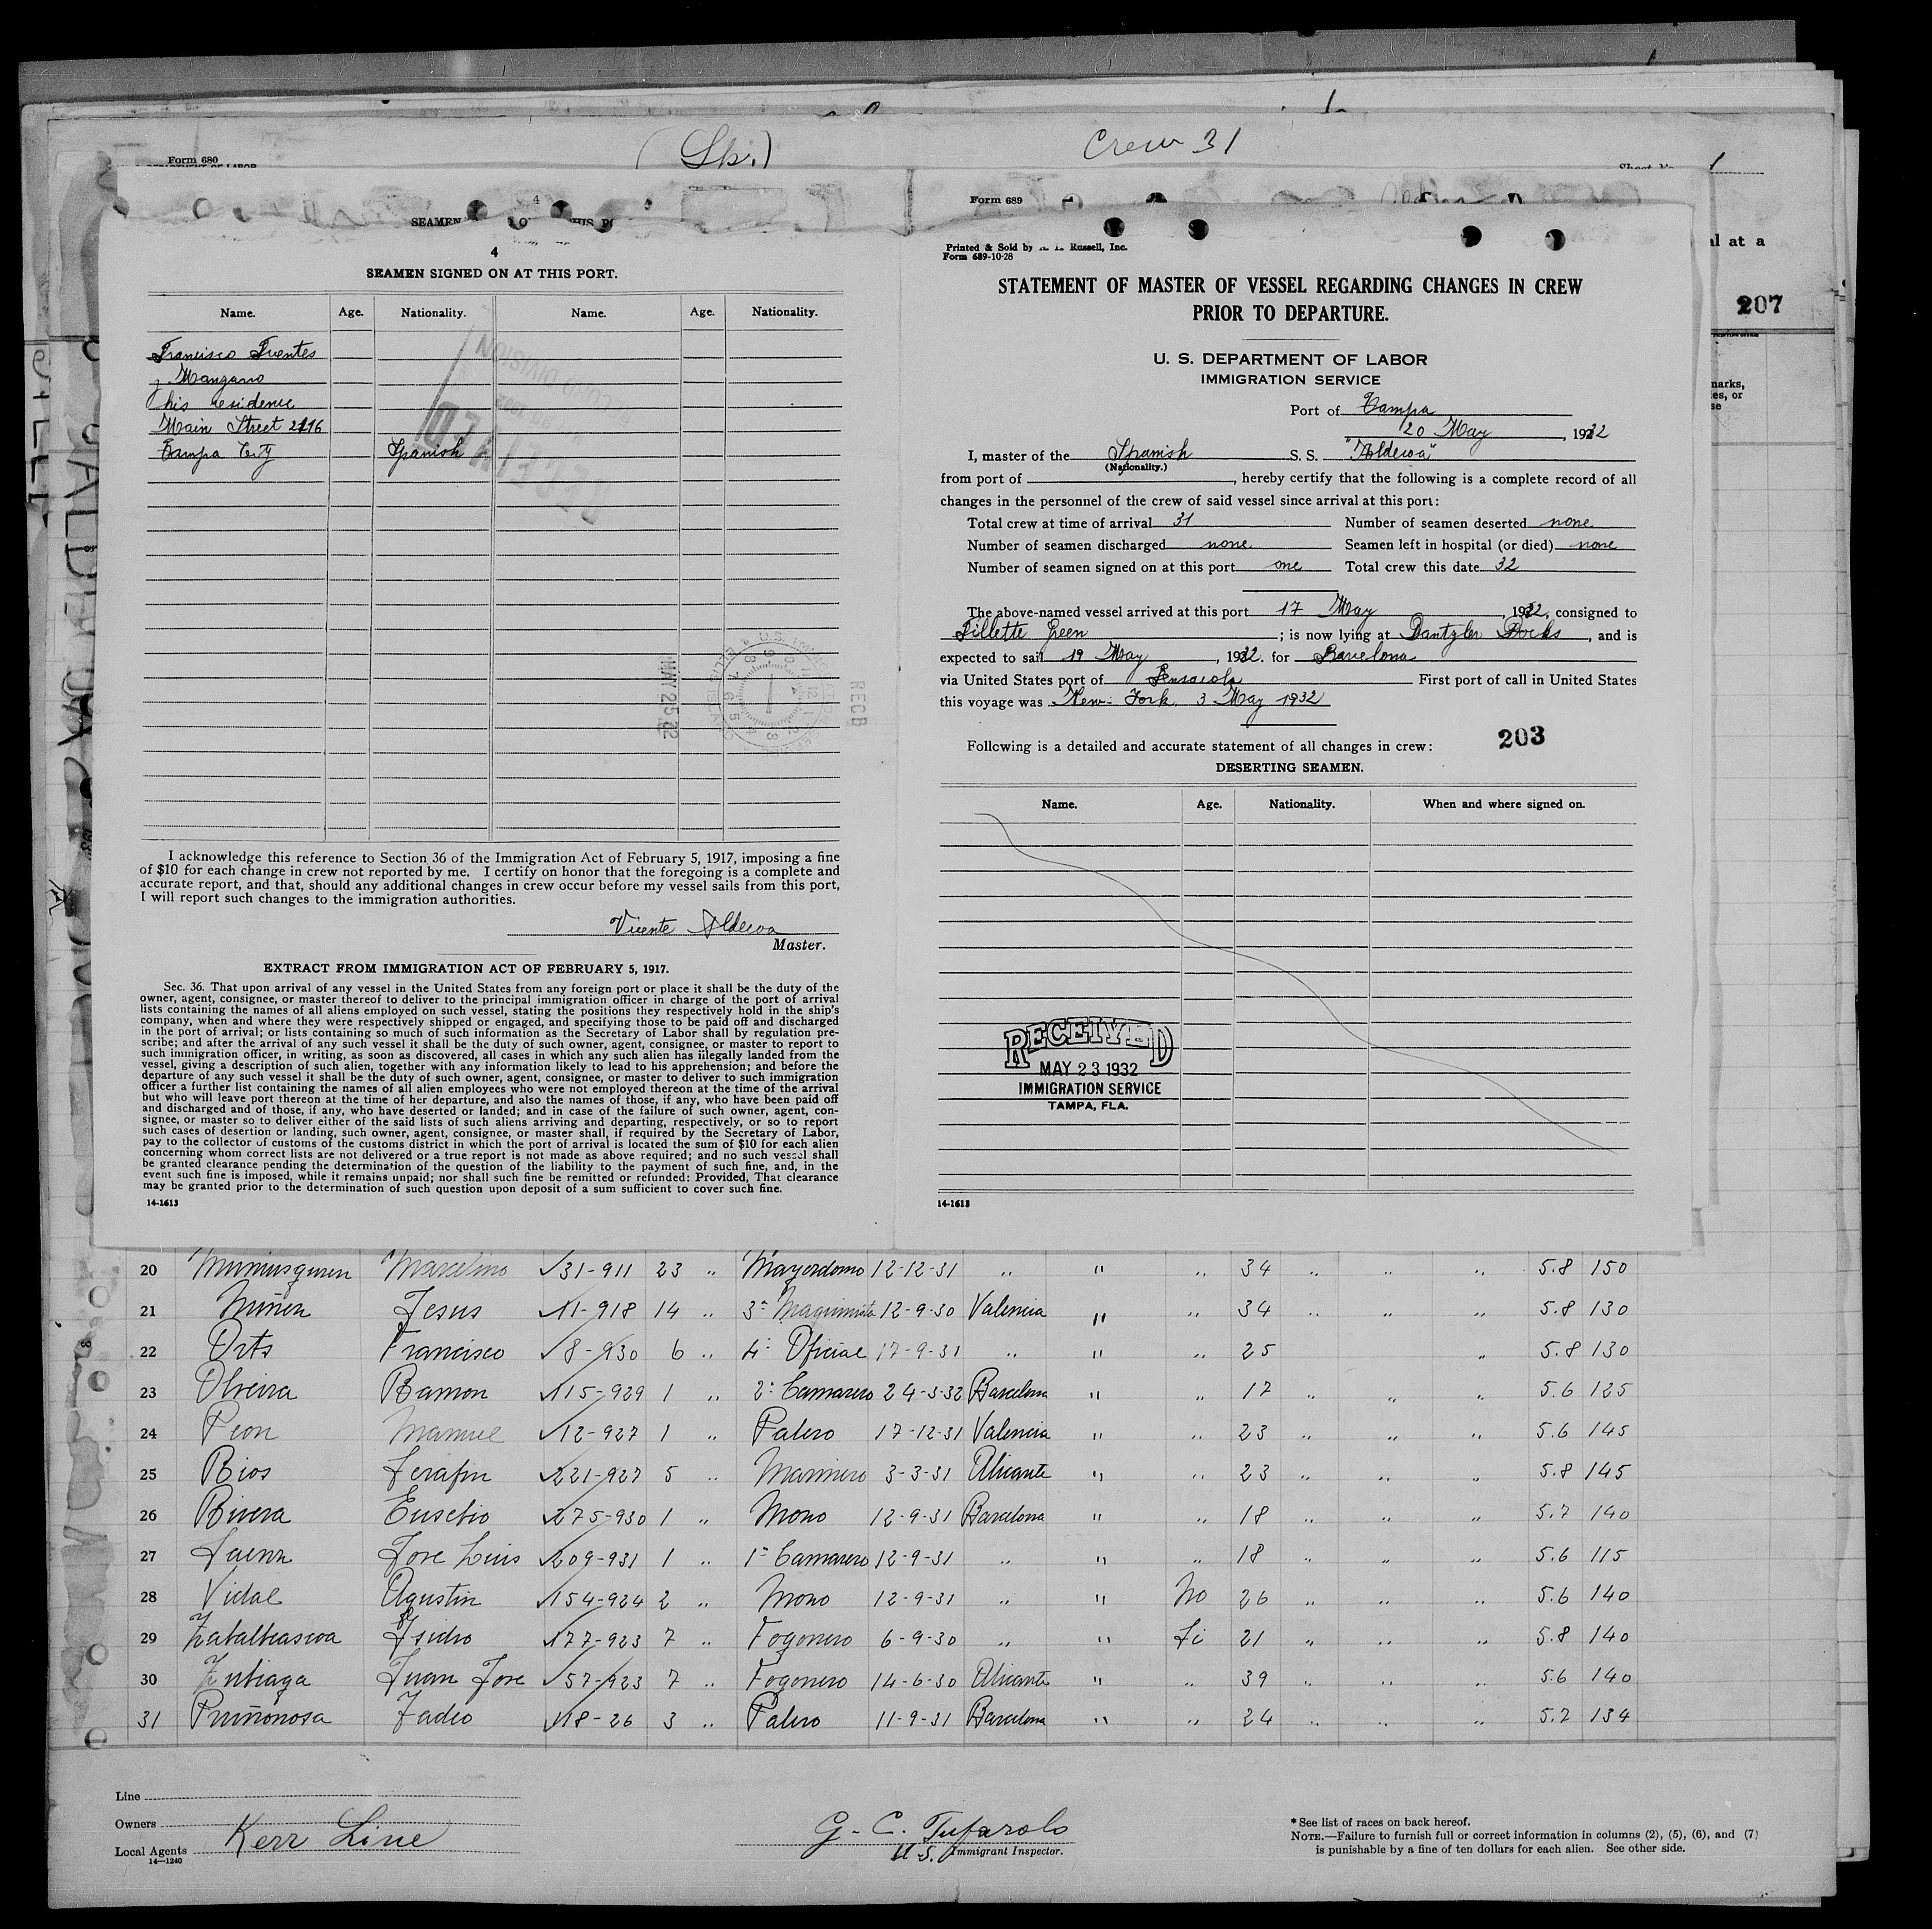 Form 680
(Sp.)
Crew 31
4
SEAMEN
Form 689
al at a
207
narks,
es, or
se
4
SEAMEN SIGNED ON AT THIS PORT.
Name. Age. Nationality. Name. Age. Nationality.
Francisco Fuentes
y Manzano
his residence
Main Street 2116
Tampa City Spanish
RECEIVED
RECORD DIVISION
MAY 25 32
RECD
I acknowledge this reference to Section 36 of the Immigration Act of February 5, 1917, imposing a fine
of $10 for each change in crew not reported by me. I certify on honor that the foregoing is a complete and
accurate report, and that, should any additional changes in crew occur before my vessel sails from this port,
I will report such changes to the immigration authorities.
Vicente Aldecoa
Master.
EXTRACT FROM IMMIGRATION ACT OF FEBRUARY 5, 1917.
Sec. 36. That upon arrival of any vessel in the United States from any foreign port or place it shall be the duty of the
owner, agent, consignee, or master thereof to deliver to the principal immigration officer in charge of the port of arrival
lists containing the names of all aliens employed on such vessel, stating the positions they respectively hold in the ship's
company, when and where they were respectively shipped or engaged, and specifying those to be paid off and discharged
in the port of arrival; or lists containing so much of such information as the Secretary of Labor shall by regulation pre-
scribe; and after the arrival of any such vessel it shall be the duty of such owner, agent, consignee, or master to report to
such immigration officer, in writing, as soon as discovered, all cases in which any such alien has illegally landed from the
vessel, giving a description of such alien, together with any information likely to lead to his apprehension; and before the
departure of any such vessel it shall be the duty of such owner, agent, consignee, or master to deliver to such immigration
officer a further list containing the names of all alien employees who were not employed thereon at the time of the arrival
but who will leave port thereon at the time of her departure, and also the names of those, if any, who have been paid off
and discharged and of those, if any, who have deserted or landed; and in case of the failure of such owner, agent, con-
signee, or master so to deliver either of the said lists of such aliens arriving and departing, respectively, or so to report
such cases of desertion or landing, such owner, agent, consignee, or master shall, if required by the Secretary of Labor,
pay to the collector of customs of the customs district in which the port of arrival is located the sum of $10 for each alien
concerning whom correct lists are not delivered or a true report is not made as above required; and no such vessel shall
be granted clearance pending the determination of the question of the liability to the payment of such fine, and, in the
event such fine is imposed, while it remains unpaid; nor shall such fine be remitted or refunded: Provided, That clearance
may be granted prior to the determination of such question upon deposit of a sum sufficient to cover such fine.
14-1613
Printed & Sold by Russell, Inc.
Form 689-10-28
STATEMENT OF MASTER OF VESSEL REGARDING CHANGES IN CREW
PRIOR TO DEPARTURE.
U. S. DEPARTMENT OF LABOR
IMMIGRATION SERVICE
Port of Tampa
20 May, 1932
I, master of the Spanish S. S. "Aldecoa"
(Nationality.)
from port of , hereby certify that the following is a complete record of all
changes in the personnel of the crew of said vessel since arrival at this port:
Total crew at time of arrival 31 Number of seamen deserted none
Number of seamen discharged none Seamen left in hospital (or died) none
Number of seamen signed on at this port one Total crew this date 32
The above-named vessel arrived at this port 17 May, 1932, consigned to
Lillette Green; is now lying at Dantzler Docks, and is
expected to sail 19 May, 1932. for Barcelona
via United States port of Pensacola First port of call in United States
this voyage was New-York 3 May 1932
Following is a detailed and accurate statement of all changes in crew: 203
DESERTING SEAMEN.
Name. Age. Nationality. When and where signed on.
RECEIVED
MAY 23 1932
IMMIGRATION SERVICE
TAMPA, FLA.
14-1613
20 Marcelino 31-911 23 " Mayordomo 12-12-31 " " " 34 " " " 5.8 150
21 Jesus 11-918 14 " 3º Maquinista 12-9-30 Valencia " " 34 " " " 5.8 130
22 Orts Francisco 8-930 6 " 4º Oficial 17-9-31 " " " 25 " 5.8 130
23 Olveira Ramon 115-929 1 " 2º Camarero 24-3-32 Barcelona " " 17 " " " 5.6 125
24 Peon Manuel 12-927 1 " Palero 17-12-31 Valencia " " 23 " " " 5.6 145
25 Rios Serafin 221-927 5 " Marinero 3-3-31 Alicante " " 23 " " " 5.8 145
26 Rivera Eusebio 275-930 1 " Mono 12-9-31 Barcelona " " 18 " " " 5.7 140
27 Saenz Jose Luis 209-931 1 " 1º Camarero 12-9-31 " " " 18 " " " 5.6 115
28 Vidal Agustin 154-924 2 " Mono 12-9-31 " " No 26 " " " 5.6 140
29 Zabalteascoa Isidro 177-923 7 " Fogonero 6-9-30 " " Si 21 " " " 5.8 140
30 Zubiaga Juan Jose 57-923 7 " Fogonero 14-6-30 Alicante " " 39 " " " 5.6 140
31 Pruñonosa Tadeo 18-26 3 " Palero 11-9-31 Barcelona " " 24 " " " 5.2 134
Line
Owners
Local Agents Kerr Line
14-1240
G. C. Tufarolo
U.S. Immigrant Inspector.
*See list of races on back hereof.
NOTE.—Failure to furnish full or correct information in columns (2), (5), (6), and (7)
is punishable by a fine of ten dollars for each alien. See other side.